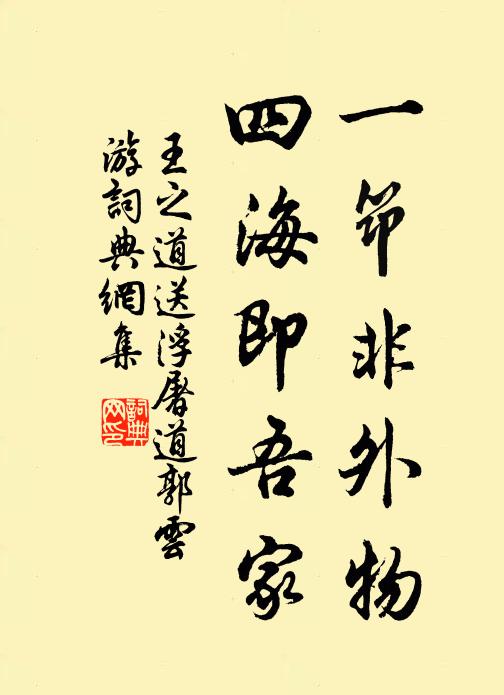 一筇非外物
四海即吾家
王之道送浮屠道郭雲
游詞典網集
詞典
网印